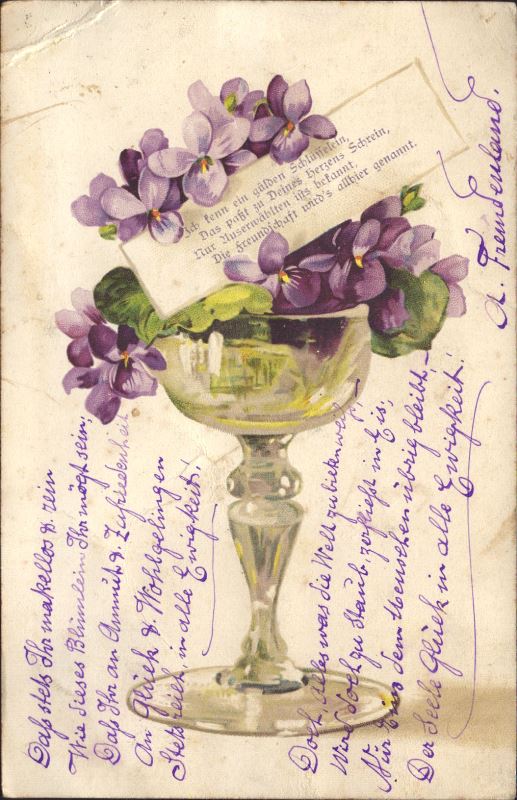 Ich kenn ein gülden Schlüsselein,
Das paßt zu Deines Herzens Schrein,
Nur Auserwählten ists bekannt,
Die Freundschaft wird's allhier genannt.
Daß stets Ihr makellos & rein
Wie dieses Blümlein Ihr mögt sein,
Daß Ihr an Anmut & Zufriedenheit
An Glück & Wohlgelingen
Stets reich, in alle Ewigkeit.
Doch, Alles was die Welt zu bieten weiß,
Wird doch zu Staub, zerfließt in Eis;
Nur Eins dem Menschen übrig bleibt –
Der Seele Glück in alle Ewigkeit!
A. Fremdenland.